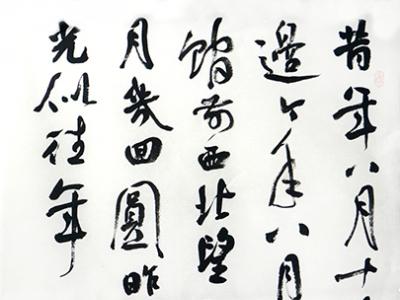 昔年八月十
邊今年八月
館前西北望
月幾回圓昨
光似往年